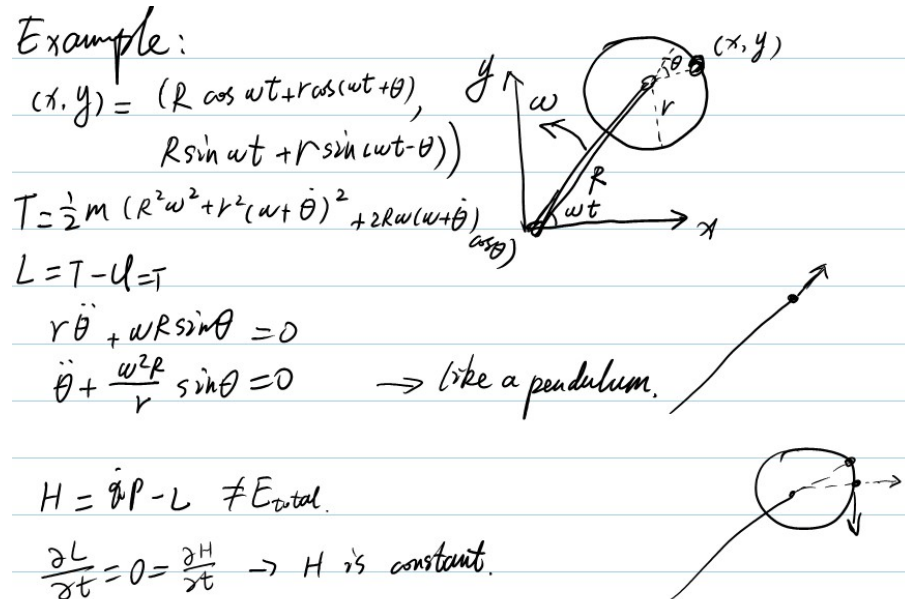 Example:
(x, y) = (R cos ωt + r cos(ωt + θ),
R sin ωt + r sin(ωt - θ))
T = 1/2 m (R²ω² + r²(ω + θ̇)² + 2Rω(ω + θ̇)
cosθ)
L = T - U = T
rθ̈ + ωR sinθ = 0
θ̈ + ω²R/r sinθ = 0 → like a pendulum.
H = q̇P - L ≠ E total.
∂L/∂t = 0 = ∂H/∂t → H is constant.
y
ω
θ
(x, y)
r
R
ωt
x